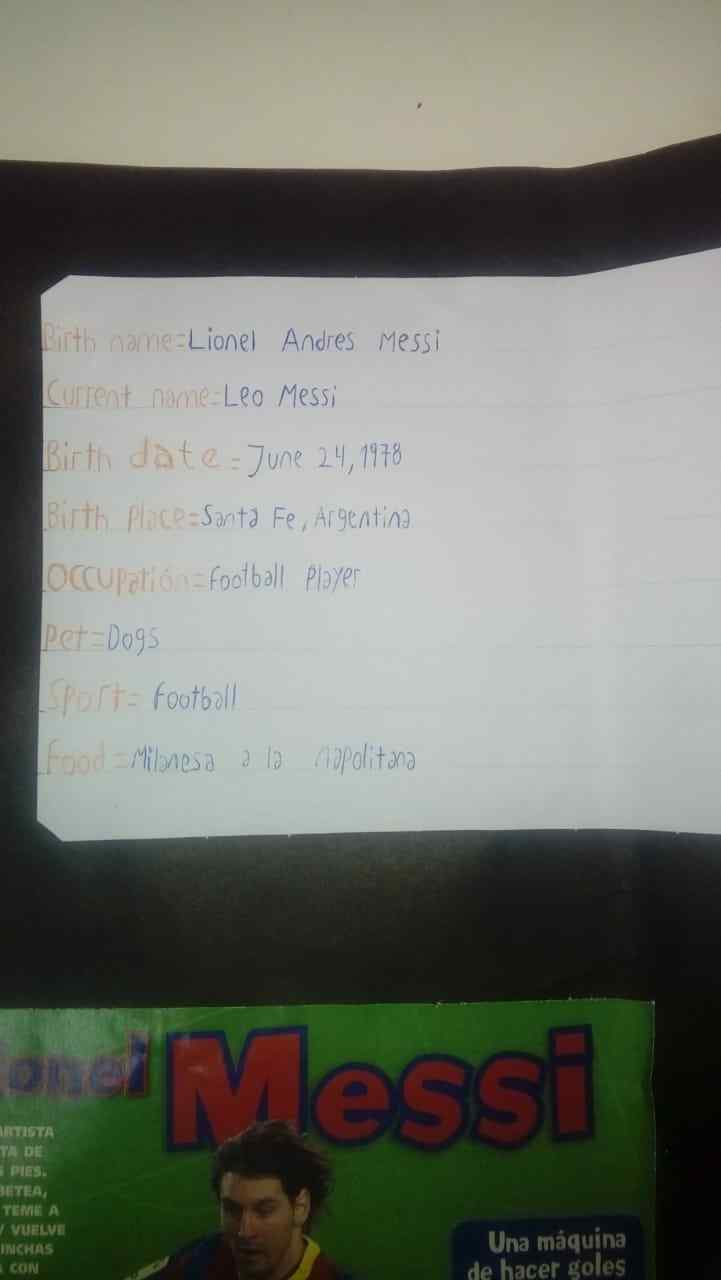 Birth name=Lionel Andres Messi
Current name=Leo Messi
Birth date=June 24, 1978
Birth Place=Santa Fe, Argentina
Occupatión=football Player
Pet=Dogs
Sport=football
food=Milanesa a la napolitana
ionel Messi
ARTISTA
TA DE
S PIES.
BETEA,
TEME A
Y VUELVE
INCHAS
A CON
Una máquina
de hacer goles